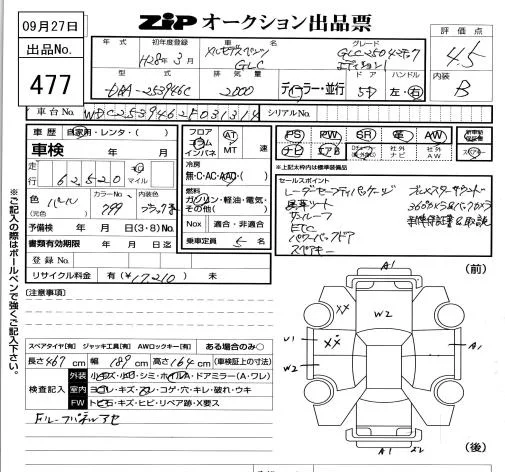 09月27日
出品No.
477
ZIP オークション出品票
評価点
4.5
内装
B
年式 初年度登録 車名 グレード
H28年3月 メルセデスベンツ GLC GLC250 4マチック
エディション1
型式 排気量 ドア ハンドル
DAA-253946C 2000 ディーラー・並行 5D 左・右
車台No. WDC2539462F031314 シリアルNo.
車歴 自家用・レンタ・( )
車検 年 月
走行 62,520 km マイル
色 (元色) パール カラーNo. 799 ブラック
予備検 年 月 日(3・8)No.
書類有効期限 年 月 日迄
登録No.
リサイクル料金 有(¥17,210) 未
フロア AT 速
コラム
インパネ MT
冷房
無・C・AC・AAC・( )
燃料
ガソリン・軽油・電気・
その他( )
Nox 適合・非適合
乗車定員 5名
PS PW SR 革 AW
ナビ 社外ナビ 社外AW
*上記太枠内は標準装備品
セールスポイント
レーダーセーフティパッケージ
サンルーフ
ETC
パワーバックドア
スペアキー
新車保証書 取説
※ご記入の際はボールペンで強くご記入下さい。
[注意事項]
スペアタイヤ[有] ジャッキ工具[有] AWロックキー[有] ある場合のみ○
長さ467cm 幅189cm 高さ164cm (車検証上の寸法)
検査記入
外装 小キズ・小凹・シミ・ホイルA・ドアミラー(A・ワレ)
室内 ヨゴレ・キズ・スレ・コゲ・穴・キレ・破れ・ウキ
FW トビ石・キズ・ヒビ・リペア跡・X要ス
(前)
A1
W2
XX
U1
XX
W2
A1
A1
(後)